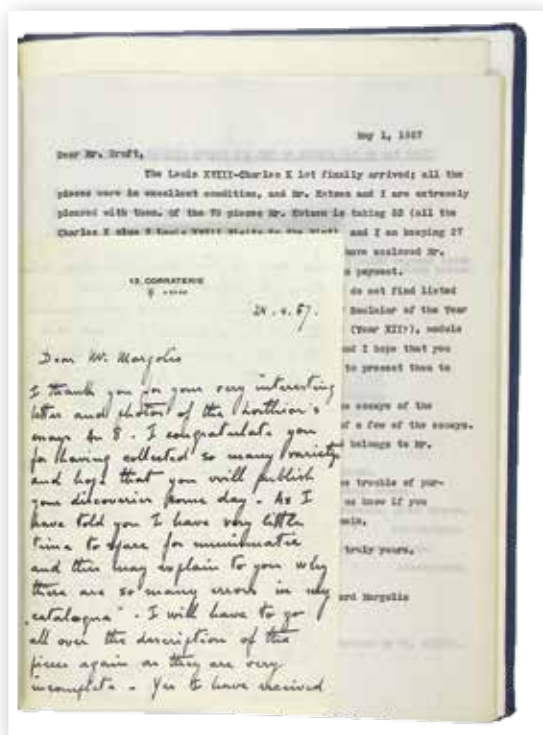 May 1, 1967
Dear Mr. Kraft,
The Louis XVIII-Charles X lot finally arrived; all the
pieces were in excellent condition, and Mr. Kotzen and I are extremely
pleased with them. Of the 79 pieces Mr. Kotzen is taking 52 (all the
Charles X plus 2 Louis XVIII Visits to the Mint) and I am keeping 27
have enclosed Mr.
payment.
do not find listed
of the Year
(Year XII), module
and I hope that you
to present them to
essays of the
of a few of the essays.
belongs to Mr.
trouble of pur-
us know if you
truly yours,
ard Margolis
13, CORRATERIE
24.4.67.
Dear Mr. Margolis
I thank you for your very interesting
letter and photos of the
essays An 8. I congratulate you
for having collected so many variety
and hope that you will publish
your discoveries some day. As I
have told you I have very little
time to spare for numismatic
and this may explain to you why
there are so many errors in my
"catalogue". I will have to go
all over the description of the
pieces again as they are very
incomplete. Yes I have received